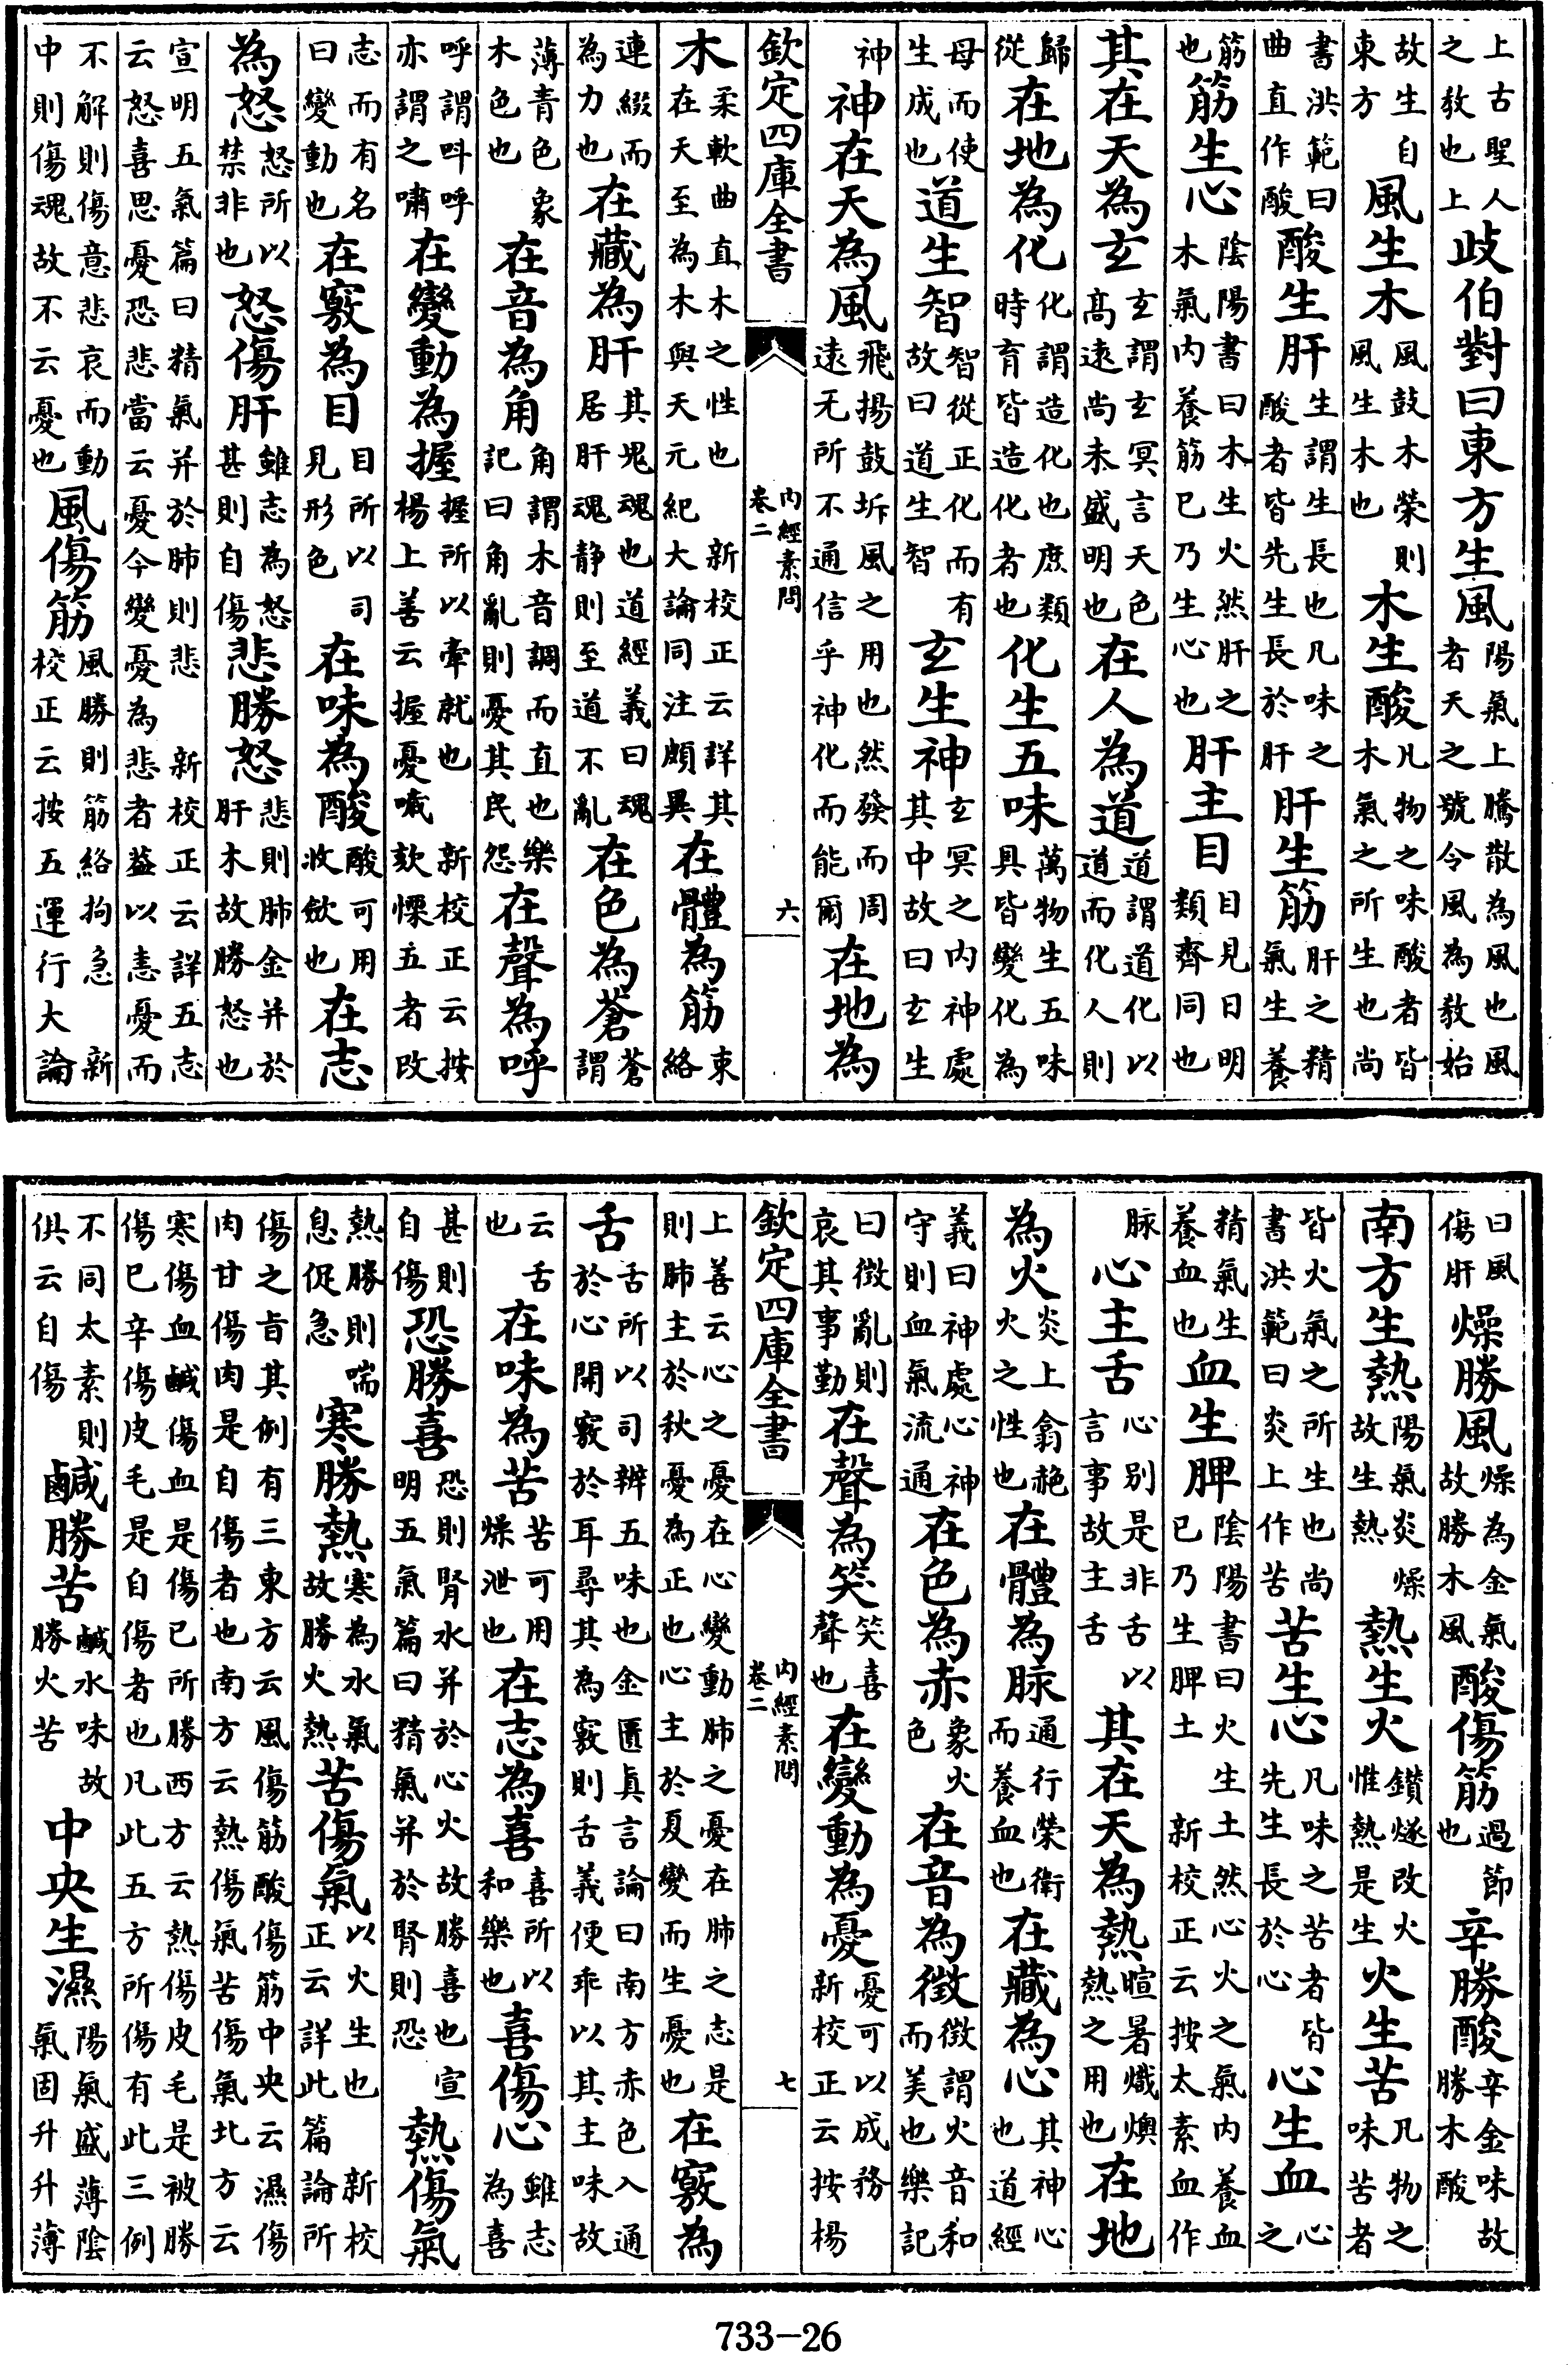 上古聖人之教也上歧伯對曰東方生風陽氣上騰散為風也風者天之號令風為教始
故生自東方風生木風鼓木榮則風生木也木生酸凡物之味酸者皆木氣之所生也尚
書洪範曰曲直作酸酸生肝生謂生長也凡味之酸者皆先生長於肝肝生筋肝之精氣生養
筋也筋生心陰陽書曰木生火然肝之木氣内養筋已乃生心也肝主目目見日明類齊同也
其在天為玄玄謂玄冥言天色高遠尚未盛明也在人為道道謂道化以道而化人則
歸從在地為化化謂造化也庶類時育皆造化者也化生五味萬物生五味具皆變化為
母而使生成也道生智智從正化而有故曰道生智玄生神玄冥之内神處其中故曰玄生
神神在天為風飛揚鼓坼風之用也然發而周遠无所不通信乎神化而能爾在地為
欽定四庫全書 内經素問 卷二 六
木柔軟曲直木之性也 新校正云詳其在天至為木與天元紀大論同注頗異在體為筋東絡
連綴而為力也在藏為肝其㙯魂也道經義曰魂居肝魂静則至道不亂在色為蒼蒼謂
薄青色象木色也在音為角角謂木音調而直也樂記曰角亂則憂其民怨在聲為呼
呼謂呌呼亦謂之嘯在變動為握握所以牽就也 新校正云按楊上善云握憂噦欬慄五者改
志而有名曰變動也在竅為目目所以司見形色在味為酸酸可用收斂也在志
為怒怒所以禁非也怒傷肝雖志為怒甚則自傷悲勝怒悲則肺金并於肝木故勝怒也
宣明五氣篇曰精氣并於肺則悲 新校正云詳五志云怒喜思憂恐悲當云憂今變憂為悲者蓋以恚憂而
不解則傷意悲哀而動中則傷魂故不云憂也風傷筋風勝則筋絡拘急 新校正云按五運行大論
曰風傷肝燥勝風燥為金氣故勝木風酸傷筋過節也辛勝酸辛金味故勝木酸
南方生熱陽氣炎燥故生熱熱生火鑽燧改火惟熱是生火生苦凡物之味苦者
皆火氣之所生也尚書洪範曰炎上作苦苦生心凡味之苦者皆先生長於心心生血心之
精氣生養血也血生脾陰陽書曰火生土然心火之氣内養血已乃生脾土 新校正云按太素血作
脉心主舌心别是非舌以言事故主舌其在天為熱暄暑熾燠熱之用也在地
為火炎上翕赩火之性也在體為脉通行榮衛而養血也在藏為心其神心也道經
義曰神處心神守則血氣流通在色為赤象火色在音為徵徵謂火音和而美也樂記
曰徵亂則哀其事勤在聲為笑笑喜聲也在變動為憂憂可以成務新校正云按楊
欽定四庫全書 内經素問 卷二 七
上善云心之憂在心變動肺之憂在肺之志是則肺主於秋憂為正也心主於夏變而生憂也在竅為
舌舌所以司辨五味也金匱真言論曰南方赤色入通於心開竅於耳尋其為竅則舌義便乖以其主味故
云舌也在味為苦苦可用燥泄也在志為喜喜所以和樂也喜傷心雖志為喜
甚則自傷恐勝喜恐則腎水并於心火故勝喜也宣明五氣篇曰精氣并於腎則恐熱傷氣
熱勝則喘息促急寒勝熱寒為水氣故勝火熱苦傷氣以火生也 新校正云詳此篇論所
傷之㫖其例有三東方云風傷筋酸傷筋中央云濕傷肉甘傷肉是自傷者也南方云熱傷氣苦傷氣北方云
寒傷血鹹傷血是傷已所勝西方云熱傷皮毛是被勝傷已辛傷皮毛是自傷者也凡此五方所傷有此三例
不同太素則俱云自傷鹹勝苦鹹水味故勝火苦中央生濕陽氣盛薄陰氣固升升薄
733-26